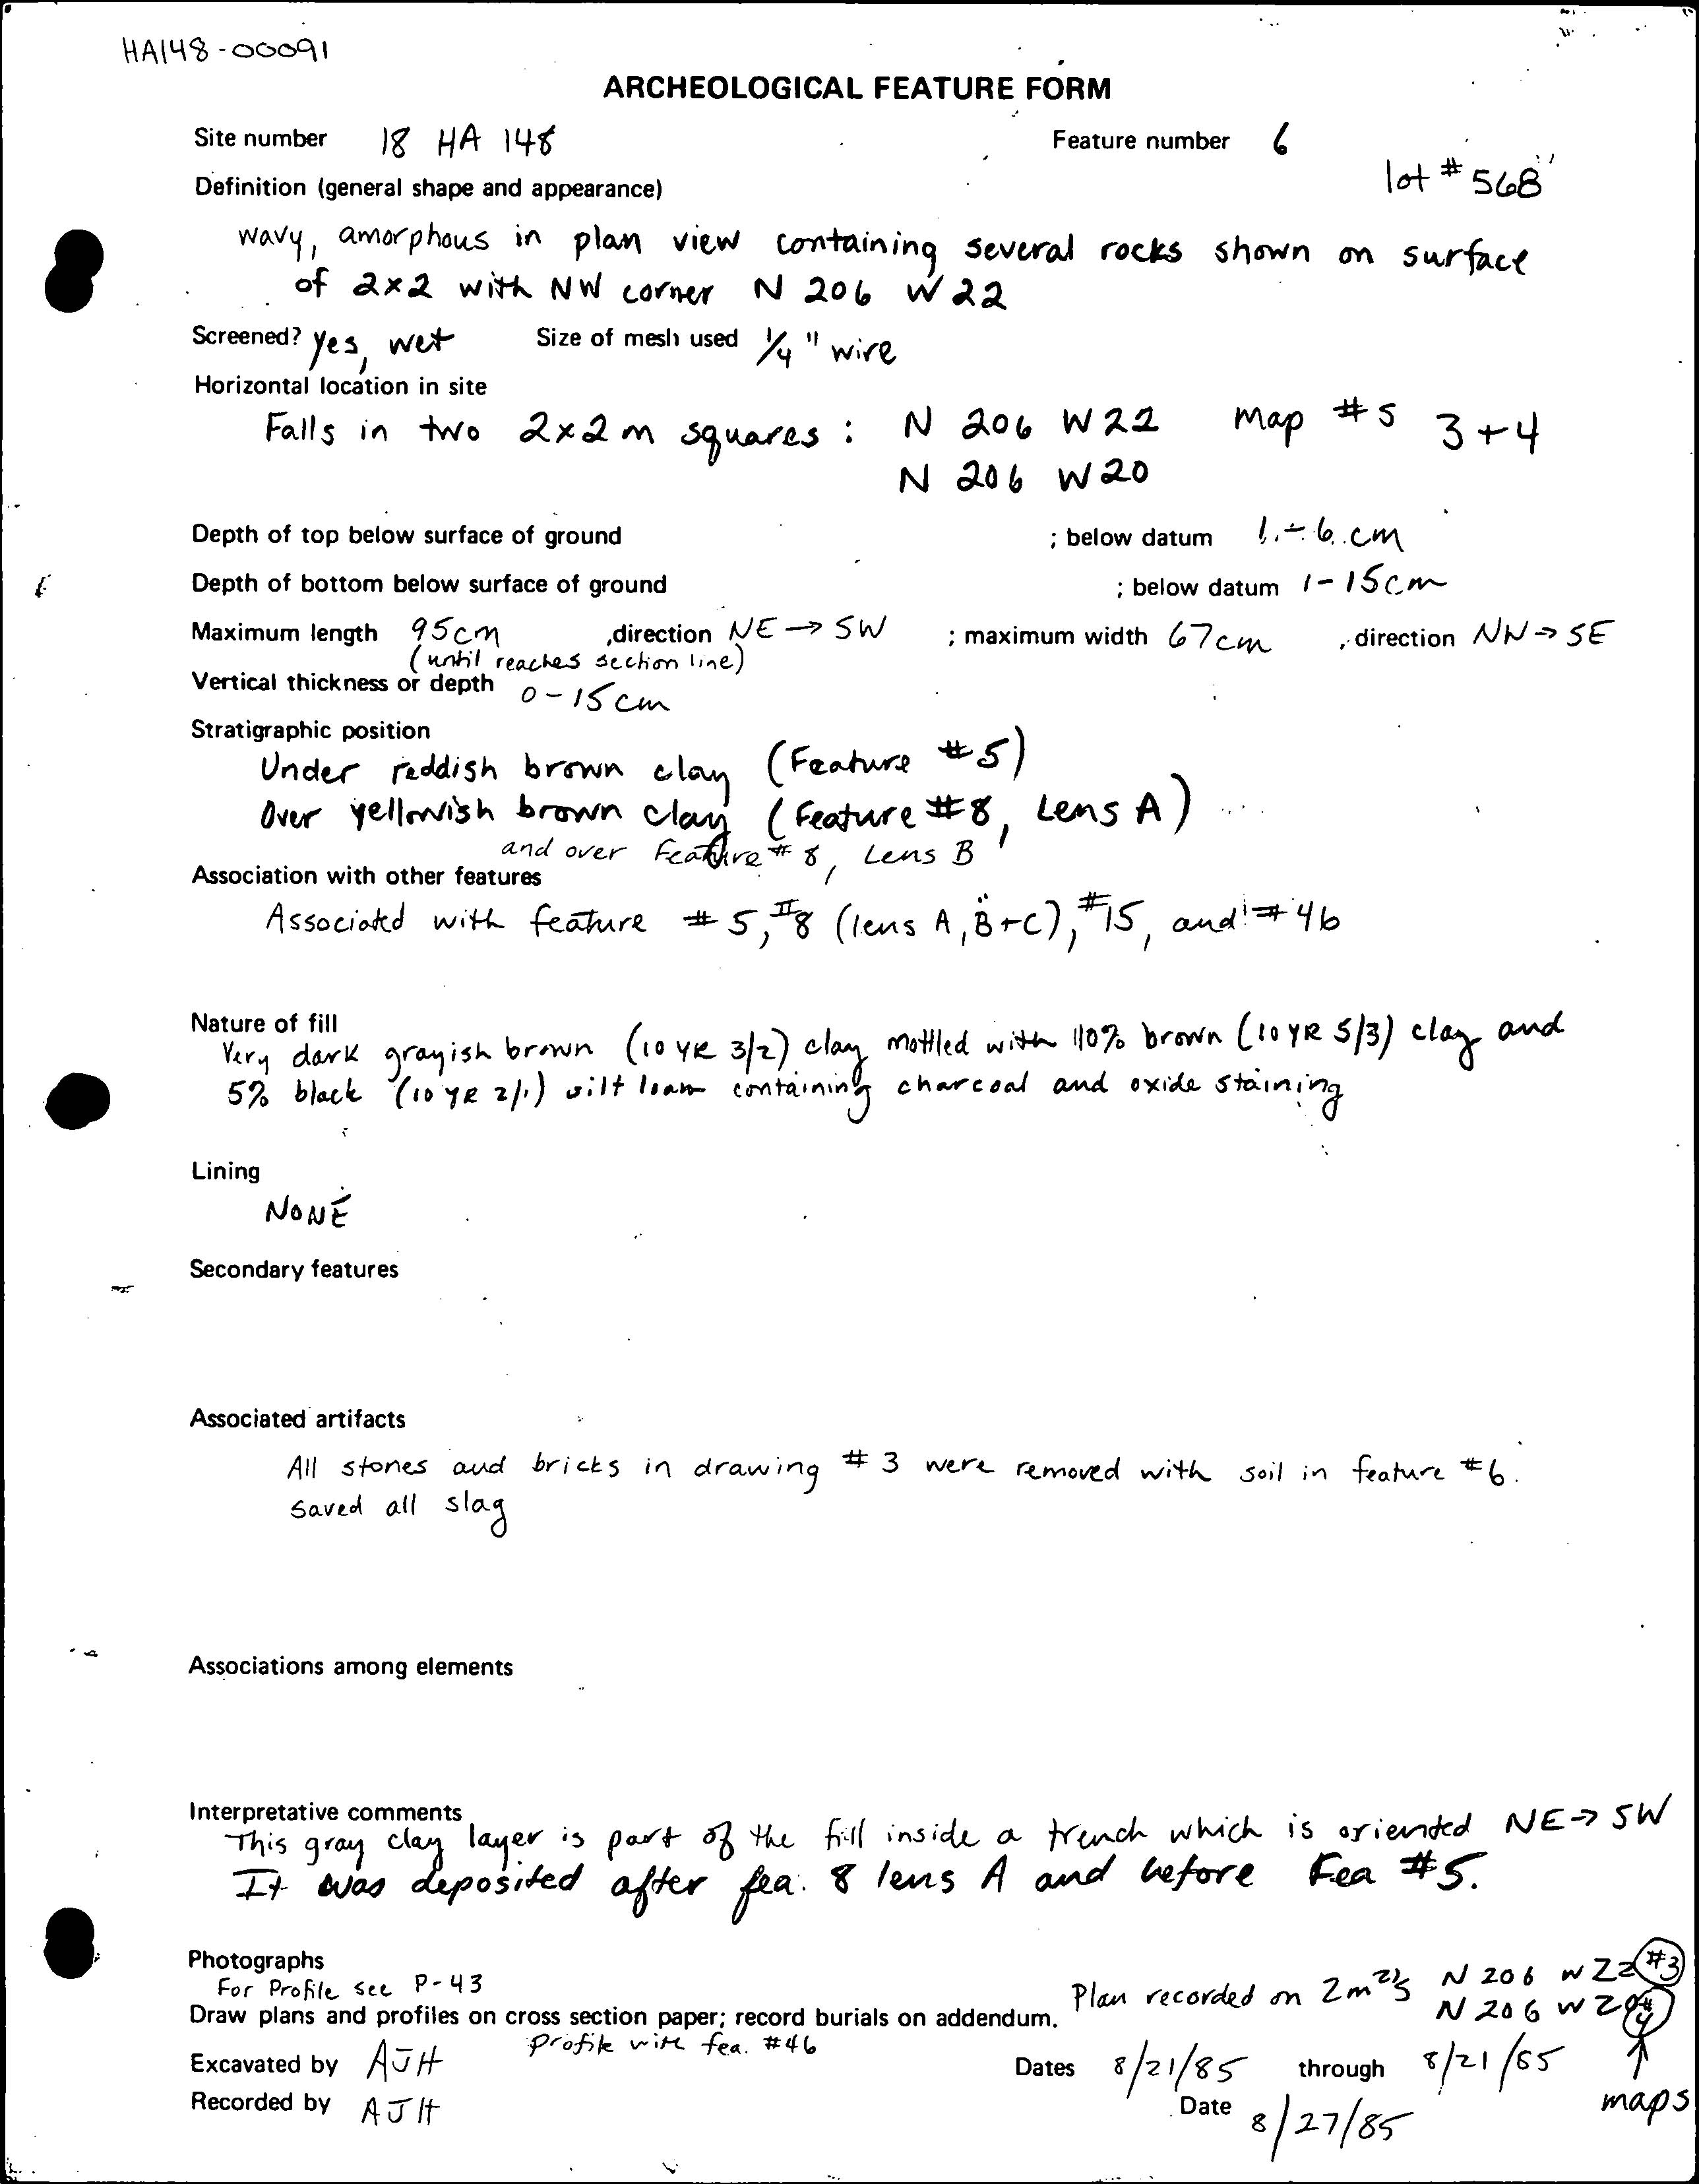 HA148-00091
ARCHEOLOGICAL FEATURE FORM
Site number 18 HA 148 Feature number 6
lot # 568
Definition (general shape and appearance)
wavy, amorphous in plan view containing several rocks shown on surface
of 2x2 with NW corner N 206 W 22
Screened? yes, wet Size of mesh used 1/4" wire
Horizontal location in site
Falls in two 2x2 m squares: N 206 W 22 Map #5 3+4
N 206 W 20
Depth of top below surface of ground ; below datum 1-6 cm
Depth of bottom below surface of ground ; below datum 1-15cm
Maximum length 95cm ,direction NE → SW ; maximum width 67cm , direction NW → SE
(until reaches section line)
Vertical thickness or depth 0-15cm
Stratigraphic position
Under reddish brown clay (Feature #5)
Over yellowish brown clay (Feature #8, Lens A)
and over Feature #8, Lens B
Association with other features
Associated with feature #5, #8 (lens A, B+C), #15, and #46
Nature of fill
Very dark grayish brown (10 YR 3/2) clay mottled with 10% brown (10 YR 5/3) clay and
5% black (10 YR 2/1) silt loam containing charcoal and oxide staining
Lining
NONE
Secondary features
Associated artifacts
All stones and bricks in drawing #3 were removed with soil in feature #6.
saved all slag
Associations among elements
Interpretative comments
This gray clay layer is part of the fill inside a trench which is oriented NE → SW
It was deposited after fea. 8 lens A and before Fea #5.
Photographs
For Profile see P-43
Plan recorded on 2m²'s N 206 W 22 #3
N 206 W 20 #4
Draw plans and profiles on cross section paper; record burials on addendum.
Profile with fea. #46
Excavated by AJH Dates 8/21/85 through 8/21/85
maps
Recorded by AJH Date 8/27/85